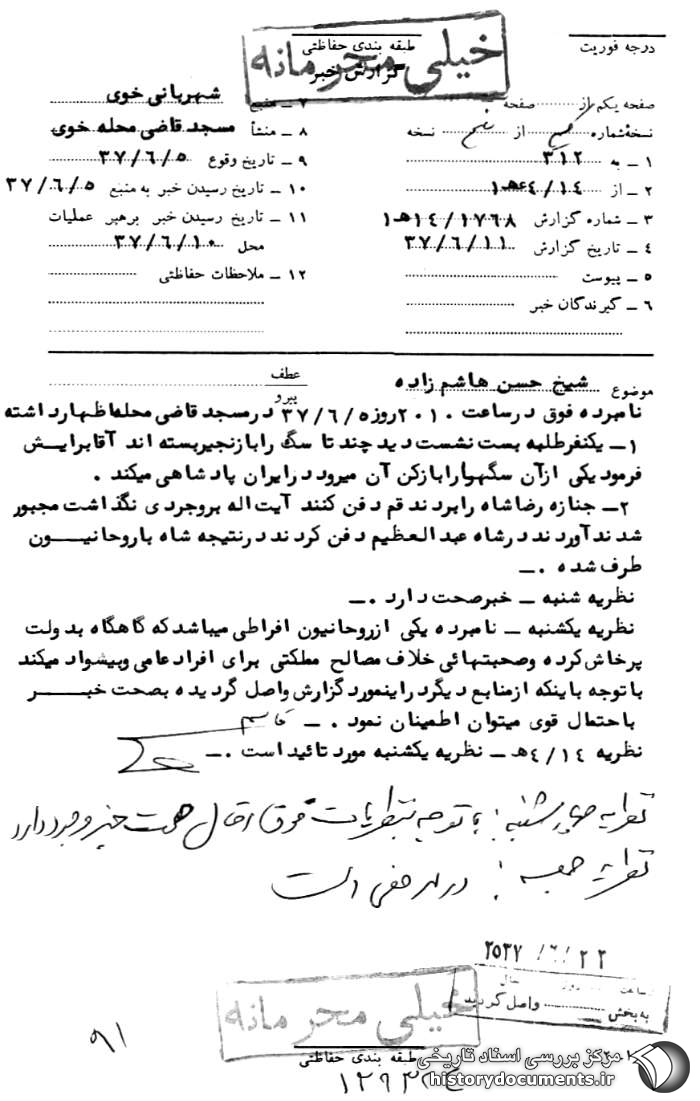 خیلی محرمانه
درجه فوریت
طبقه بندی حفاظتی
گزارش خبر
صفحه یکم از صفحه
نسخهٔ شماره از نسخه
۱ ـ به ۳۱۲
۲ ـ از ۴/۱۴ه‍۱
۳ ـ شماره گزارش ۱۷۶۸/۱۴ه‍۱
۴ ـ تاریخ گزارش ۳۷/۶/۱۱
۵ ـ پیوست
۶ ـ گیرندگان خبر
۷ ـ منبع شهربانی خوی
۸ ـ منشأ مسجد قاضی محله خوی
۹ ـ تاریخ وقوع ۳۷/۶/۵
۱۰ ـ تاریخ رسیدن خبر به منبع ۳۷/۶/۵
۱۱ ـ تاریخ رسیدن خبر برهبر عملیات
محل ۳۷/۶/۱۰
۱۲ ـ ملاحظات حفاظتی
موضوع شیخ حسن هاشم زاده
عطف
پیرو
نامبرده فوق در ساعت ۲۰۱۰ روز ۳۷/۶/۵ در مسجد قاضی محله اظهار داشته
۱ـ یکنفر طلبه بست نشست دید چند تا سگ را با زنجیر بسته اند آقا برایش
فرمود یکی از آن سگها را باز کن آن میرود در ایران پادشاهی میکند .
۲ـ جنازه رضاشاه را بردند قم دفن کنند آیت اله بروجردی نگذاشت مجبور
شدند آوردند در شاه عبدالعظیم دفن کردند در نتیجه شاه با روحانیون
طرف شده .ـ
نظریه شنبه ـ خبر صحت دارد .ـ
نظریه یکشنبه ـ نامبرده یکی از روحانیون افراطی میباشد که گاهگاه بدولت
پرخاش کرده و صحبتهائی خلاف مصالح مملکتی برای افراد عامی و بیسواد میکند
با توجه باینکه از منابع دیگر در اینمورد گزارش واصل گردیده بصحت خبر
باحتمال قوی میتوان اطمینان نمود . ـ
نظریه ۴/۱۴ه‍ ـ نظریه یکشنبه مورد تائید است .ـ
نظریه چهارشنبه : با توجه بنظریات فوق احتمال صحت خبر وجود دارد
نظریه جمعه :
۲۵۳۷/۶/۲۲
ساعت روز سال
به بخش واصل گردید
خیلی محرمانه
طبقه بندی حفاظتی
۹۱
مرکز بررسی اسناد تاریخی
historydocuments.ir